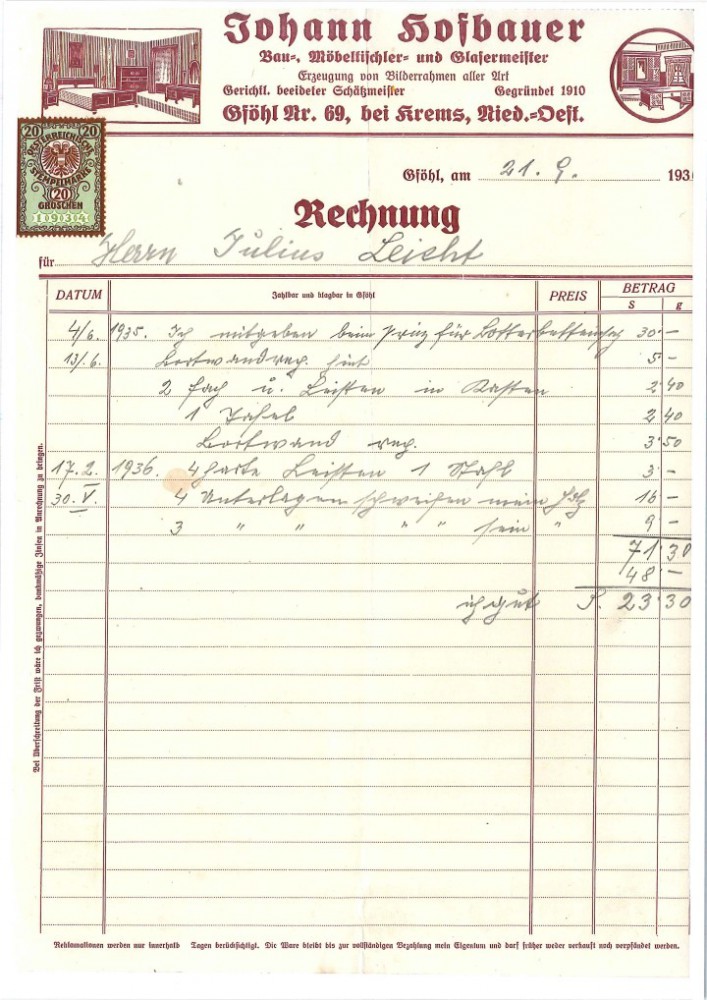 Johann Hofbauer
Bau-, Möbeltischler- und Glasermeister
Erzeugung von Bilderrahmen aller Art
Gerichtl. beeideter Schätzmeister Gegründet 1910
Gföhl Nr. 69, bei Krems, Nied.-Oest.
20 20
OESTERREICHISCHE
STEMPELMARKE
20
GROSCHEN
1934
Gföhl, am 21. 9. 193
Rechnung
für Herrn Julius Leicht
DATUM Zahlbar und klagbar in Gföhl PREIS BETRAG
S g
4/6. 1935. Ich mitgeben beim Prinz für 30 -
13/.6. Bortwand rep. 5 -
2 Fach u. Leisten in Kasten 2 40
1 Tafel 2 40
Bortwand rep. 3 50
17.2. 1936. 4 harte Leisten 1 3 -
30.V. 4 Unterlagen schweifen mein Holz 16 -
3 " " " " sein " 9 -
71 30
48 -
ich gut S. 23 30
Bei Überschreitung der Frist wäre ich gezwungen, bankmäßige Zinsen in Anrechnung zu bringen.
Reklamationen werden nur innerhalb Tagen berücksichtigt. Die Ware bleibt bis zur vollständigen Bezahlung mein Eigentum und darf früher weder verkauft noch verpfändet werden.